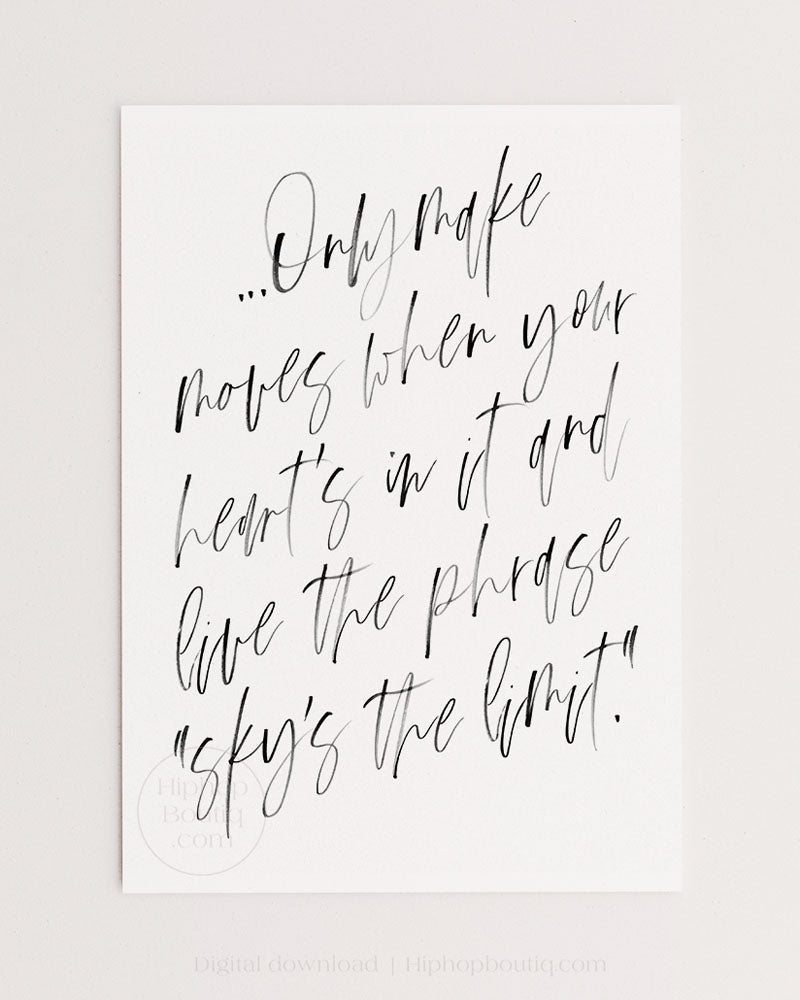 ...Only make
moves when your
heart's in it and
live the phrase
"sky's the limit."
Hiphop
Boutiq
.com
Digital download | Hiphopboutiq.com